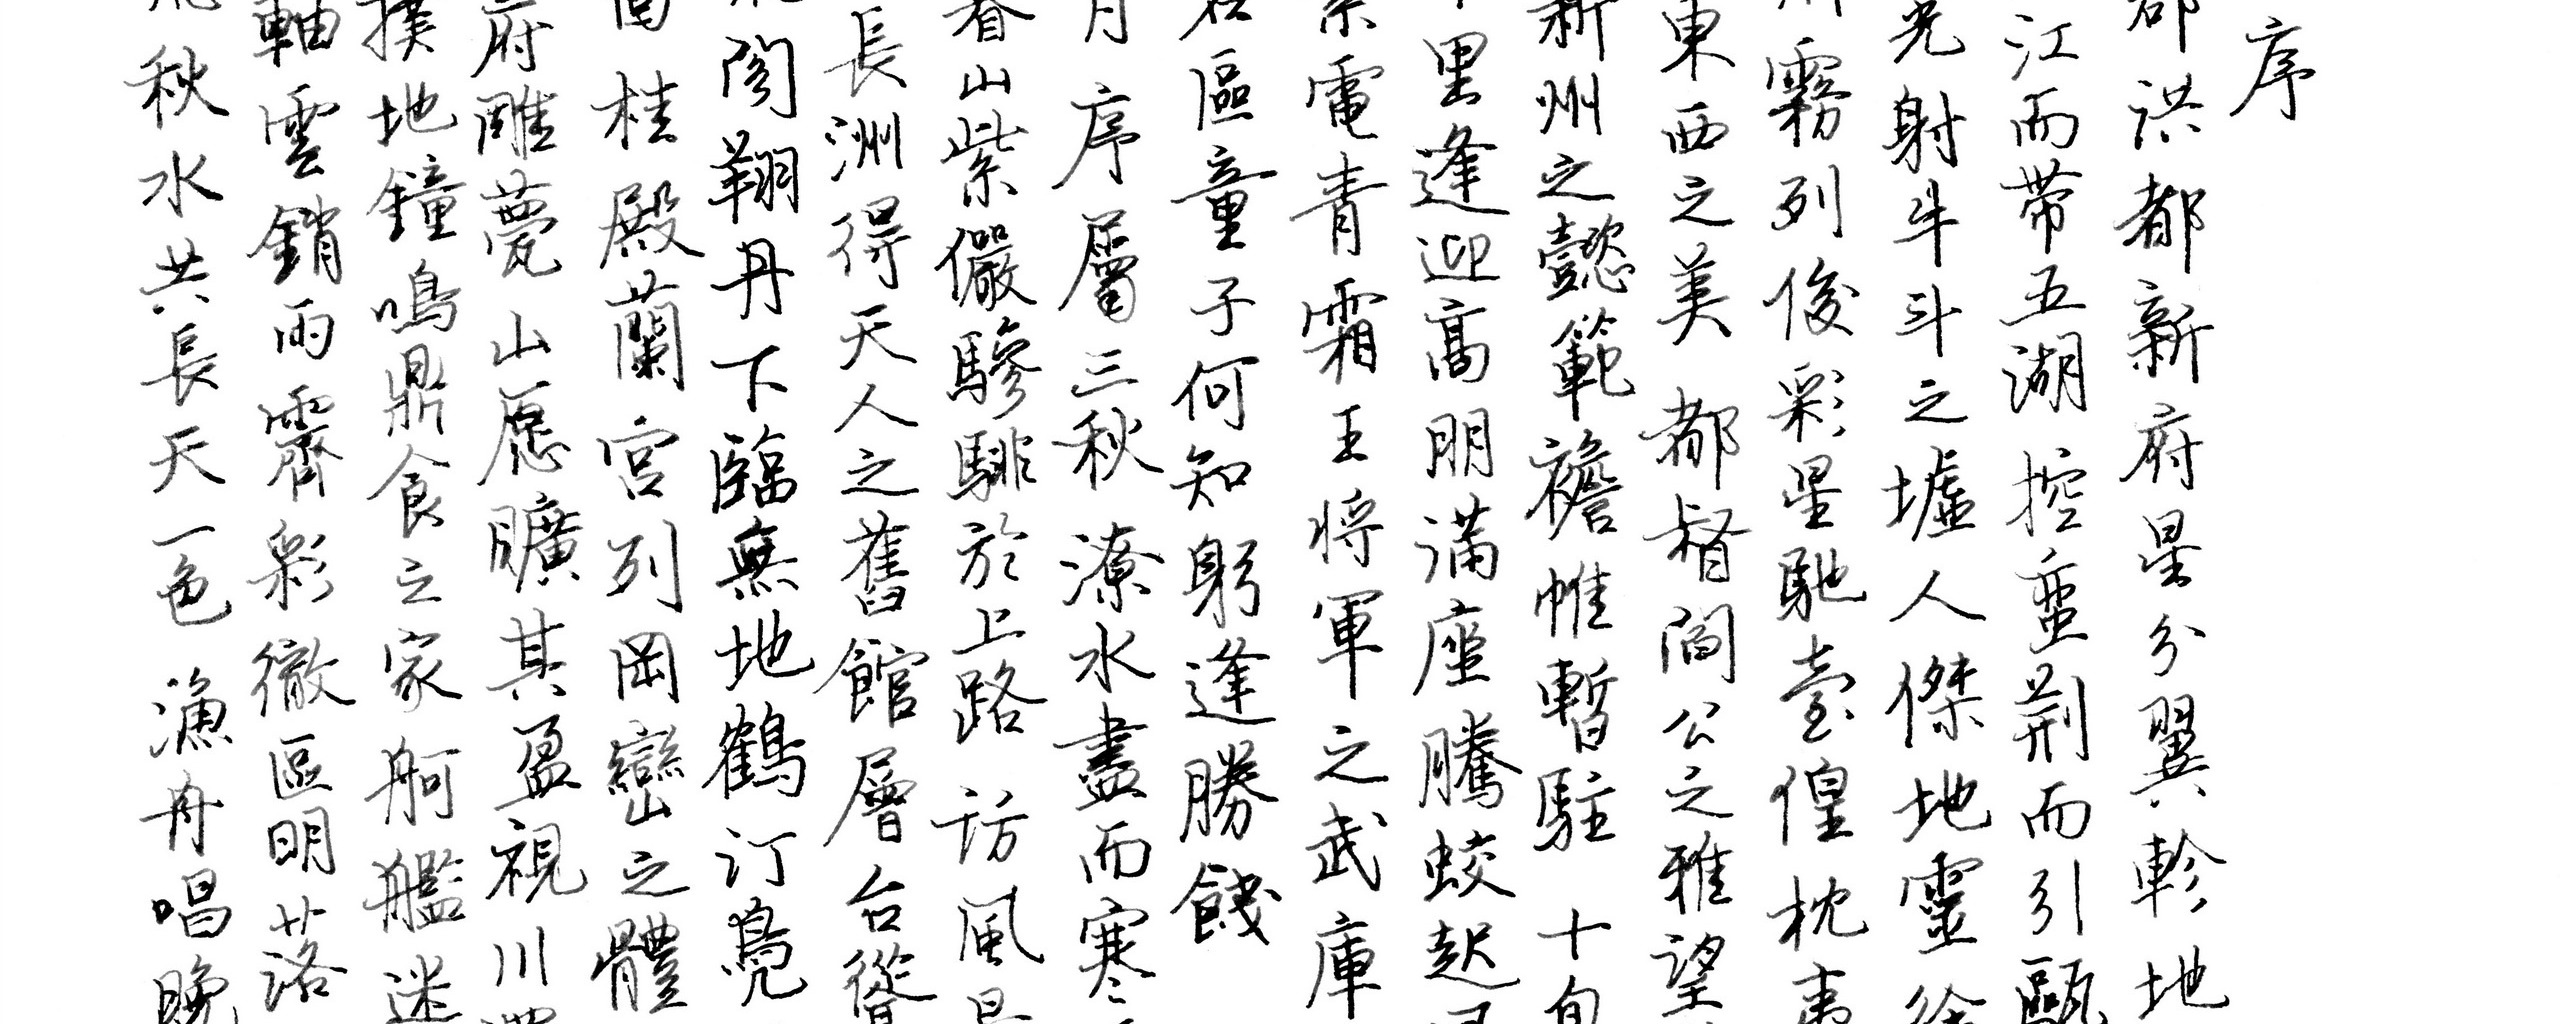 序
郡洪都新府星分翼軫地
江而带五湖控蛮荆而引甌
光射牛斗之墟人傑地靈徐
霧列俊彩星馳臺隍枕夷
東西之美都督閻公之雅望
新州之懿範襜帷暫駐十旬
里逢迎高朋满座騰蛟起
紫電青霜王将軍之武庫
區童子何知躬逢勝餞
月序屬三秋潦水盡而寒
山紫儼驂騑於上路訪風景
長洲得天人之舊館層台聳
閣翔丹下臨無地鶴汀鳧
桂殿蘭宫列岡巒之體
府雕甍山原曠其盈視川
撲地鐘鳴鼎食之家舸艦迷
軸雲銷雨霽彩徹區明落
秋水共長天一色漁舟唱晚